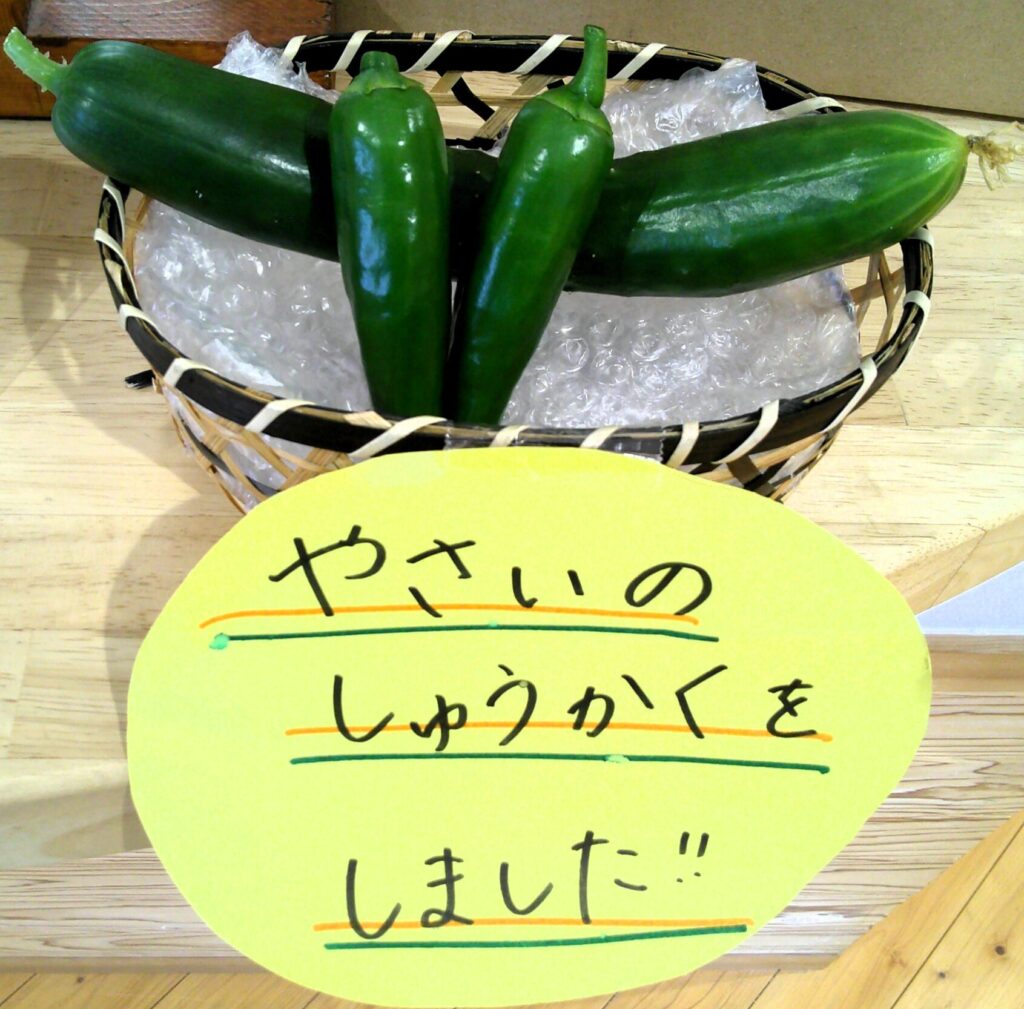 やさいの
しゅうかくを
しました!!